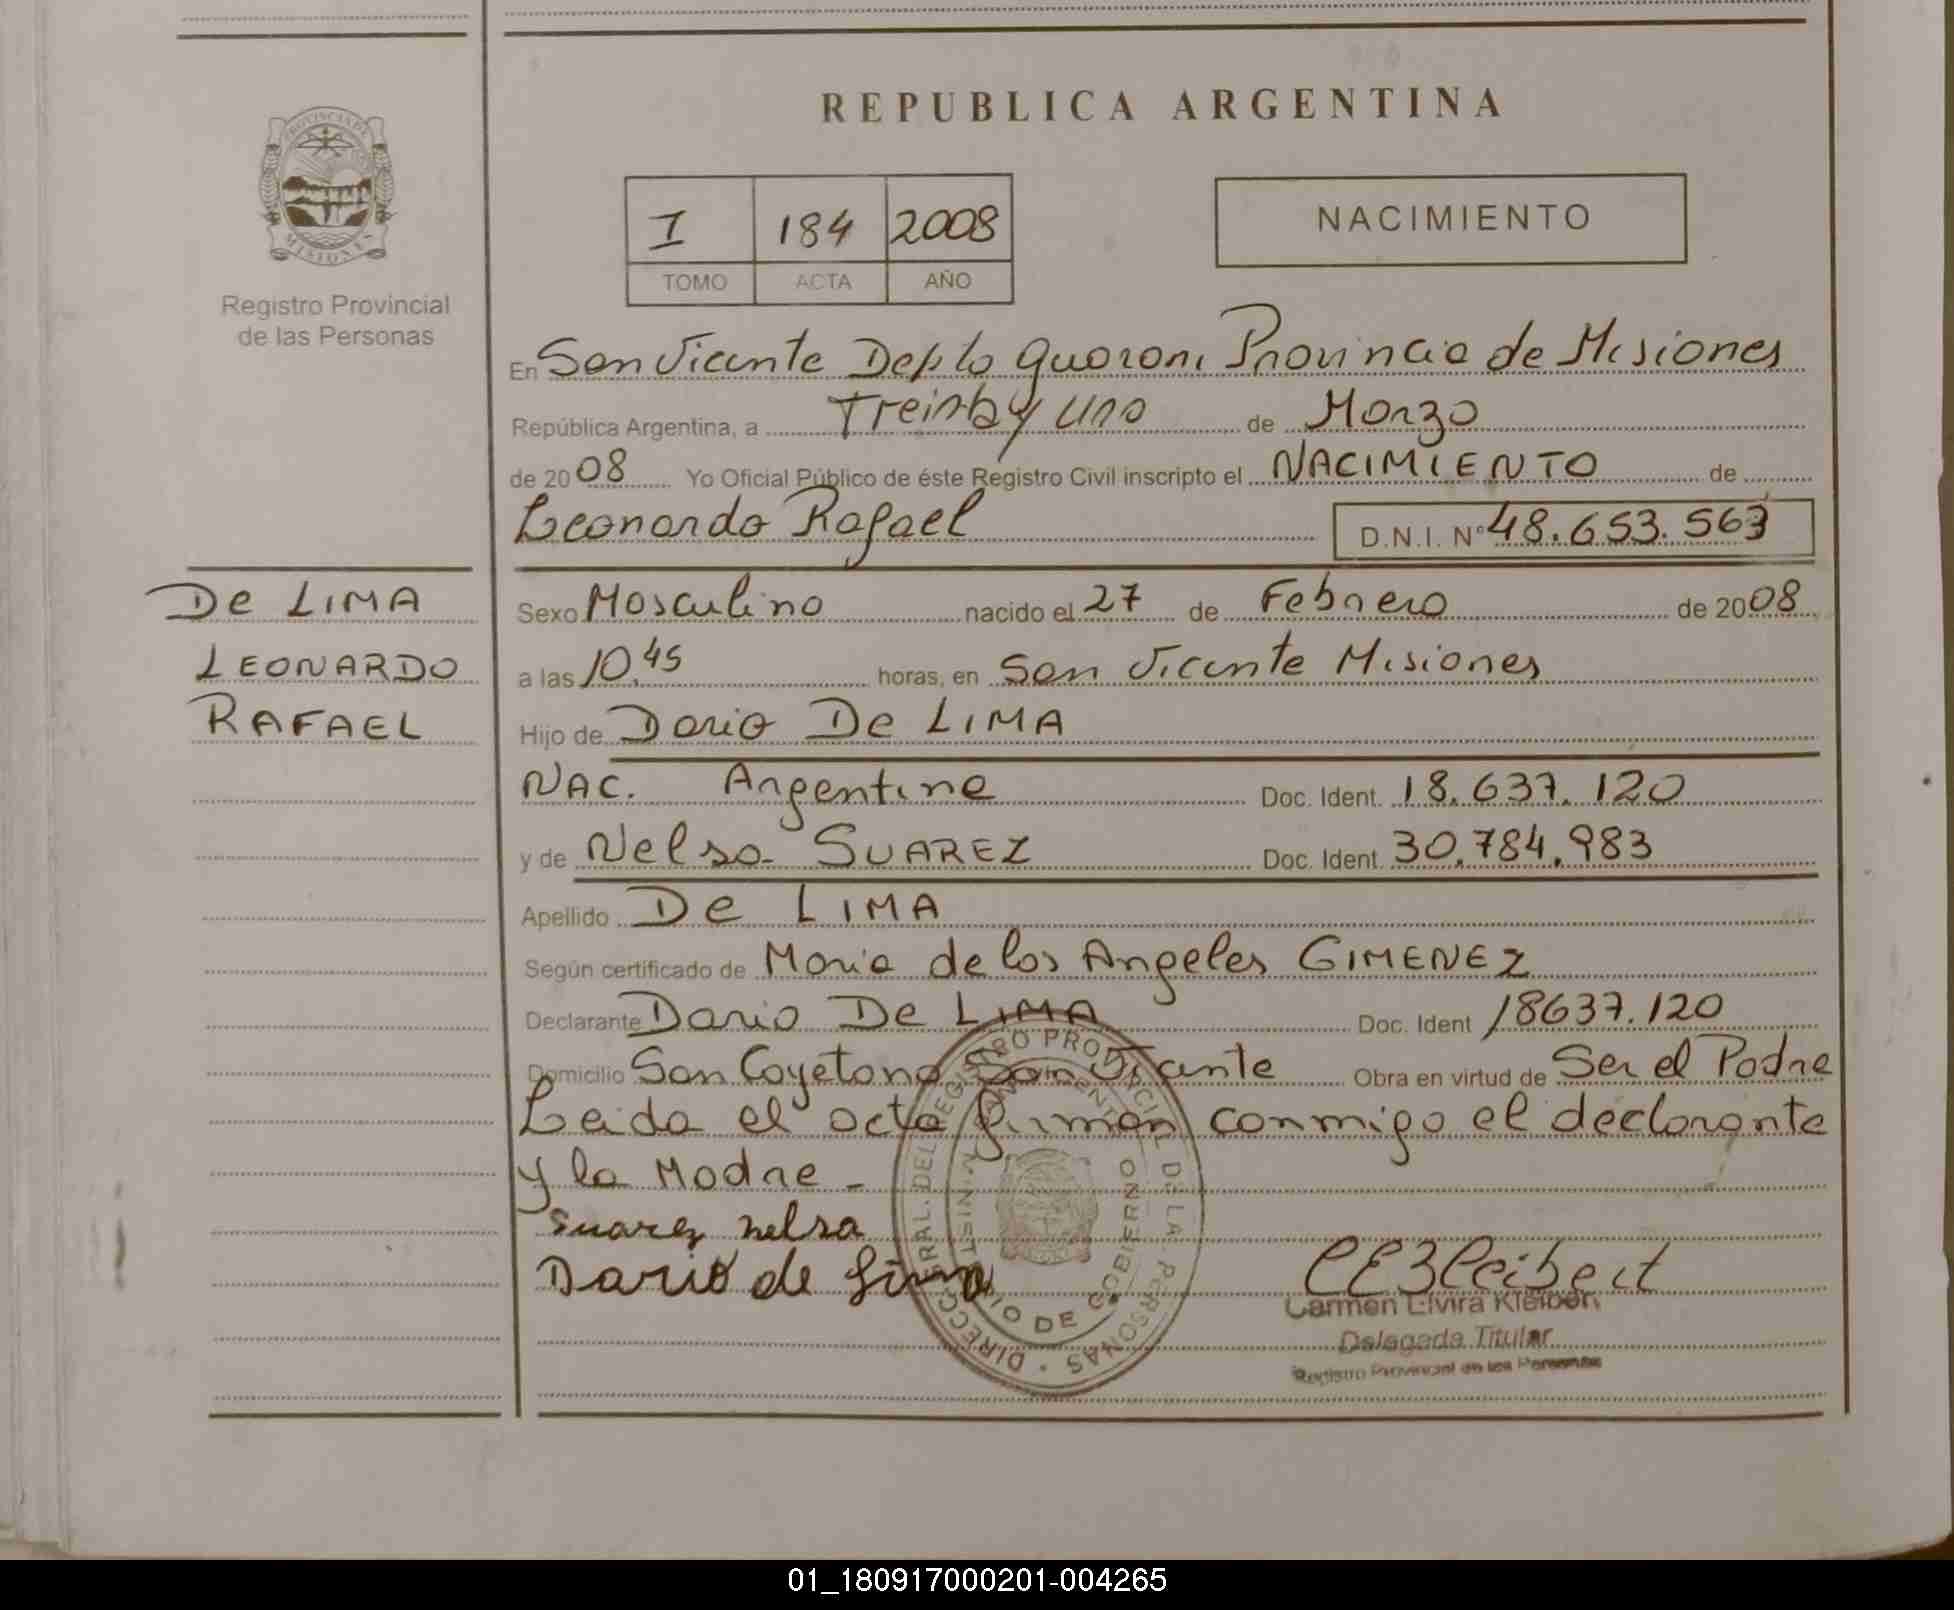 REPUBLICA ARGENTINA
PROVINCIA DE
MISIONES
Registro Provincial
de las Personas
I 184 2008
TOMO ACTA AÑO
NACIMIENTO
En San Vicente Depto Guarani Provincia de Misiones
República Argentina, a Treinta y uno de Marzo
de 2008 Yo Oficial Público de éste Registro Civil inscripto el NACIMIENTO de
Leonardo Rafael D.N.I. Nº 48.653.563
De LIMA
LEONARDO
RAFAEL
Sexo Masculino nacido el 27 de Febrero de 2008
a las 10.45 horas, en San Vicente Misiones
Hijo de Dario De LIMA
NAC. Argentina Doc. Ident. 18.637.120
y de Nelsa SUAREZ Doc. Ident. 30.784.983
Apellido De LIMA
Según certificado de Maria de los Angeles GIMENEZ
Declarante Dario De LIMA Doc. Ident 18637.120
Domicilio San Cayetano San Vicente Obra en virtud de Ser el Padre
Leida el acta firman conmigo el declarante
y la Madre -
Suarez nelsa
Dario de lima
Carmen Elvira Kleibert
Delegada Titular
Registro Provincial de las Personas
01_180917000201-004265